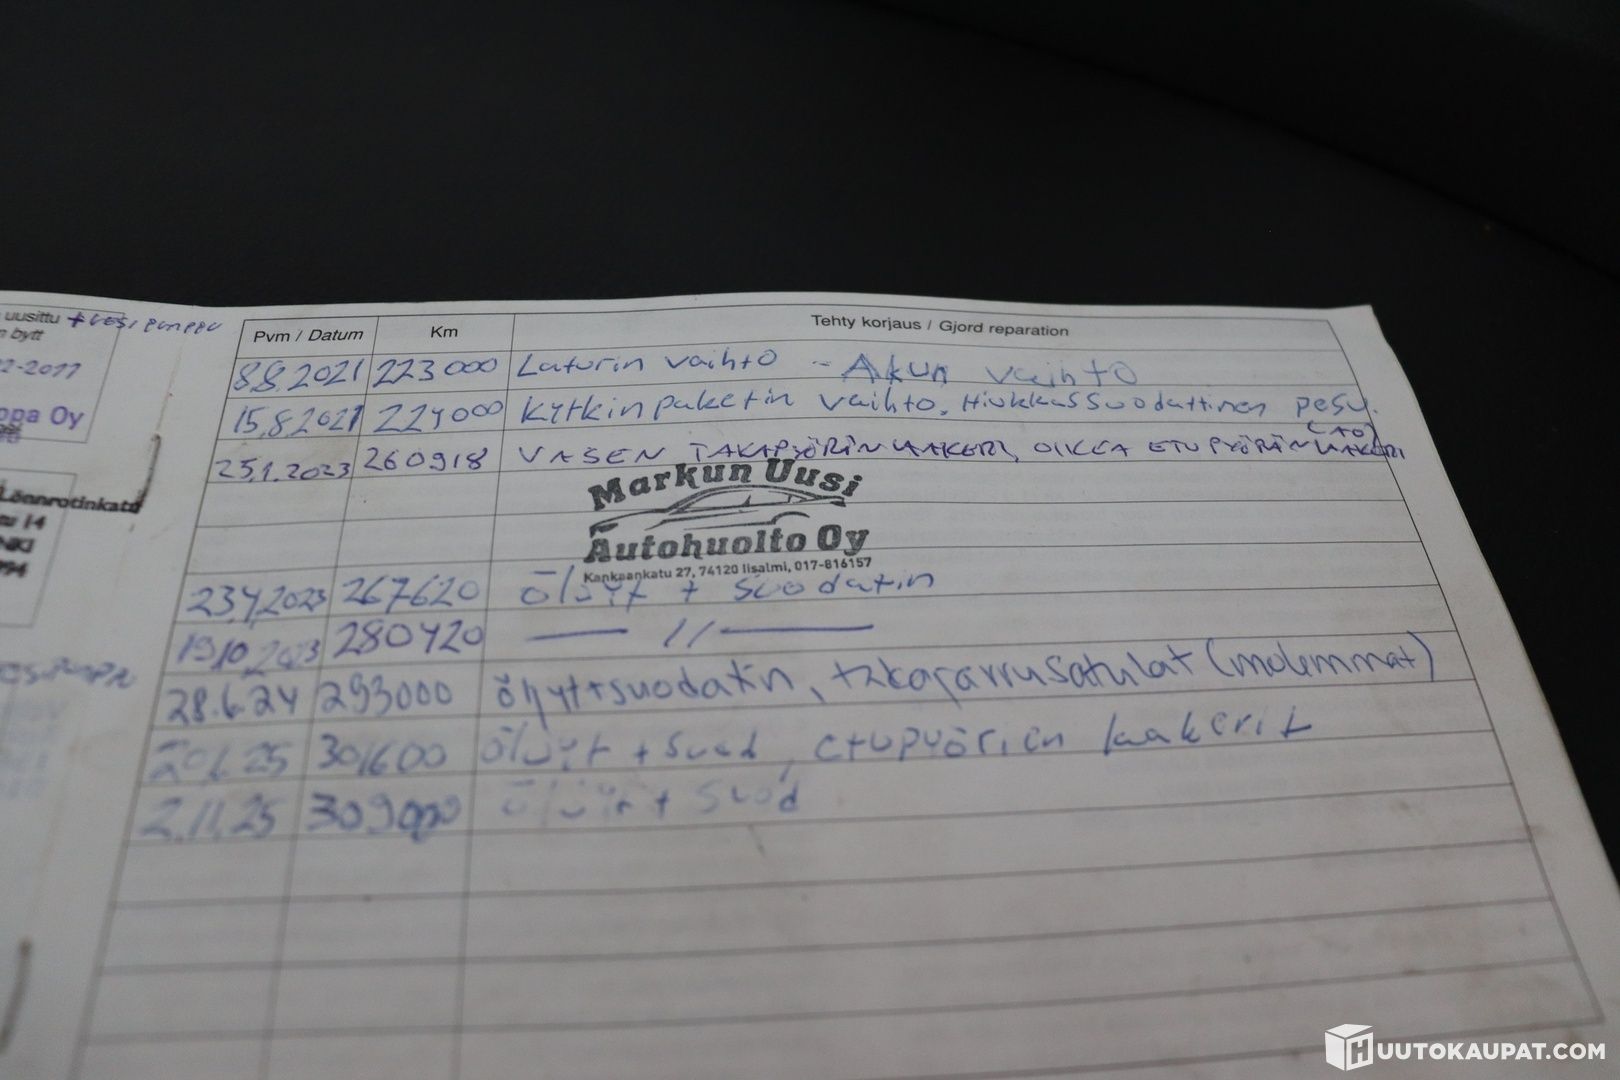 uusittu + vesipumppu
bytt
2-2017
ppa Oy
Lönnrotinkatu
tu 14
NKI
994
Pvm / Datum Km Tehty korjaus / Gjord reparation
8.8.2021 223000 Laturin vaihto - Akun vaihto
15.8.2021 224000 Kytkinpaketin vaihto, Hiukkassuodattimen pesu.
25.1.2023 260918 VASEN TAKAPYÖRÄN LAAKERI, OIKEA ETUPYÖRÄN LAAKERI
Markun Uusi
Autohuolto Oy
Kankaankatu 27, 74120 Iisalmi, 017-816157
23.4.2023 267620 öljyt + suodatin
19.10.2023 280420 — // —
28.6.24 293000 öljyt+suodatin, takajarrusatulat (molemmat)
301600 öljyt + suod, etupyörien laakerit
2.11.25 309000 öljyt + suod
HUUTOKAUPAT.COM